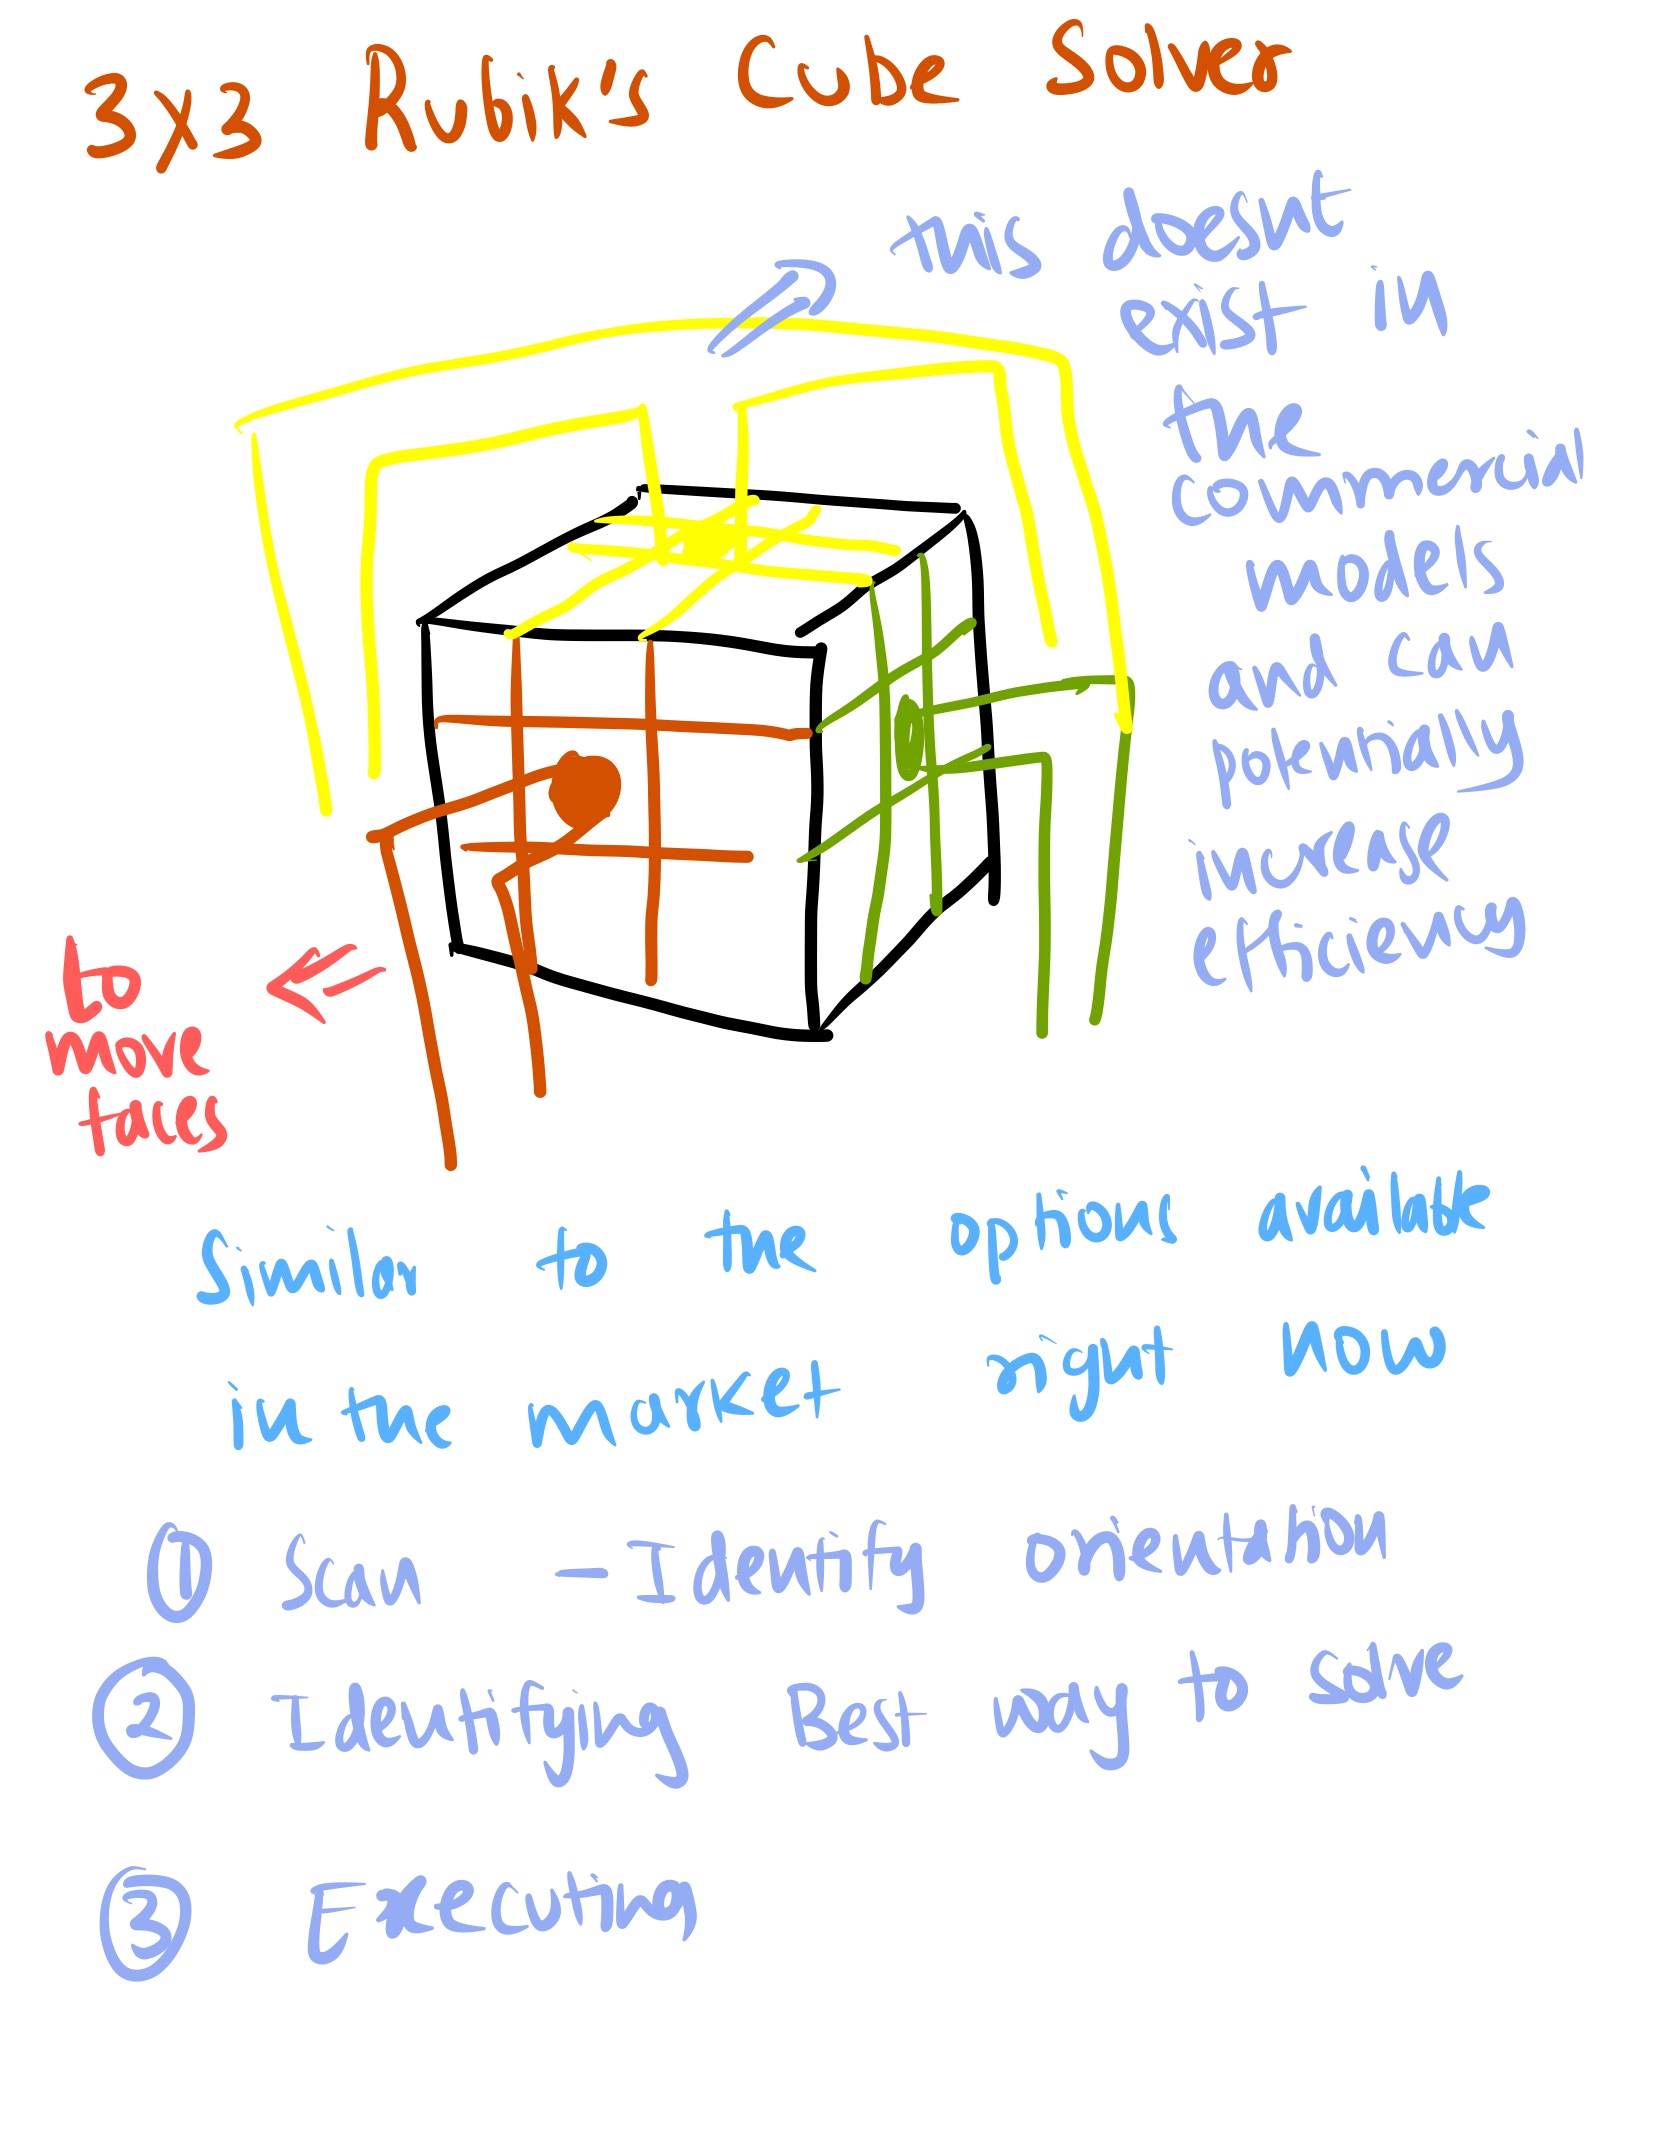 3x3 Rubik's Cube Solver
this doesnt
exist in
the
commercial
models
and can
potentially
increase
efficiency
to
move
faces
Similar to the options available
in the market right now
① Scan - Identify orientation
② Identifying Best way to solve
③ Executing